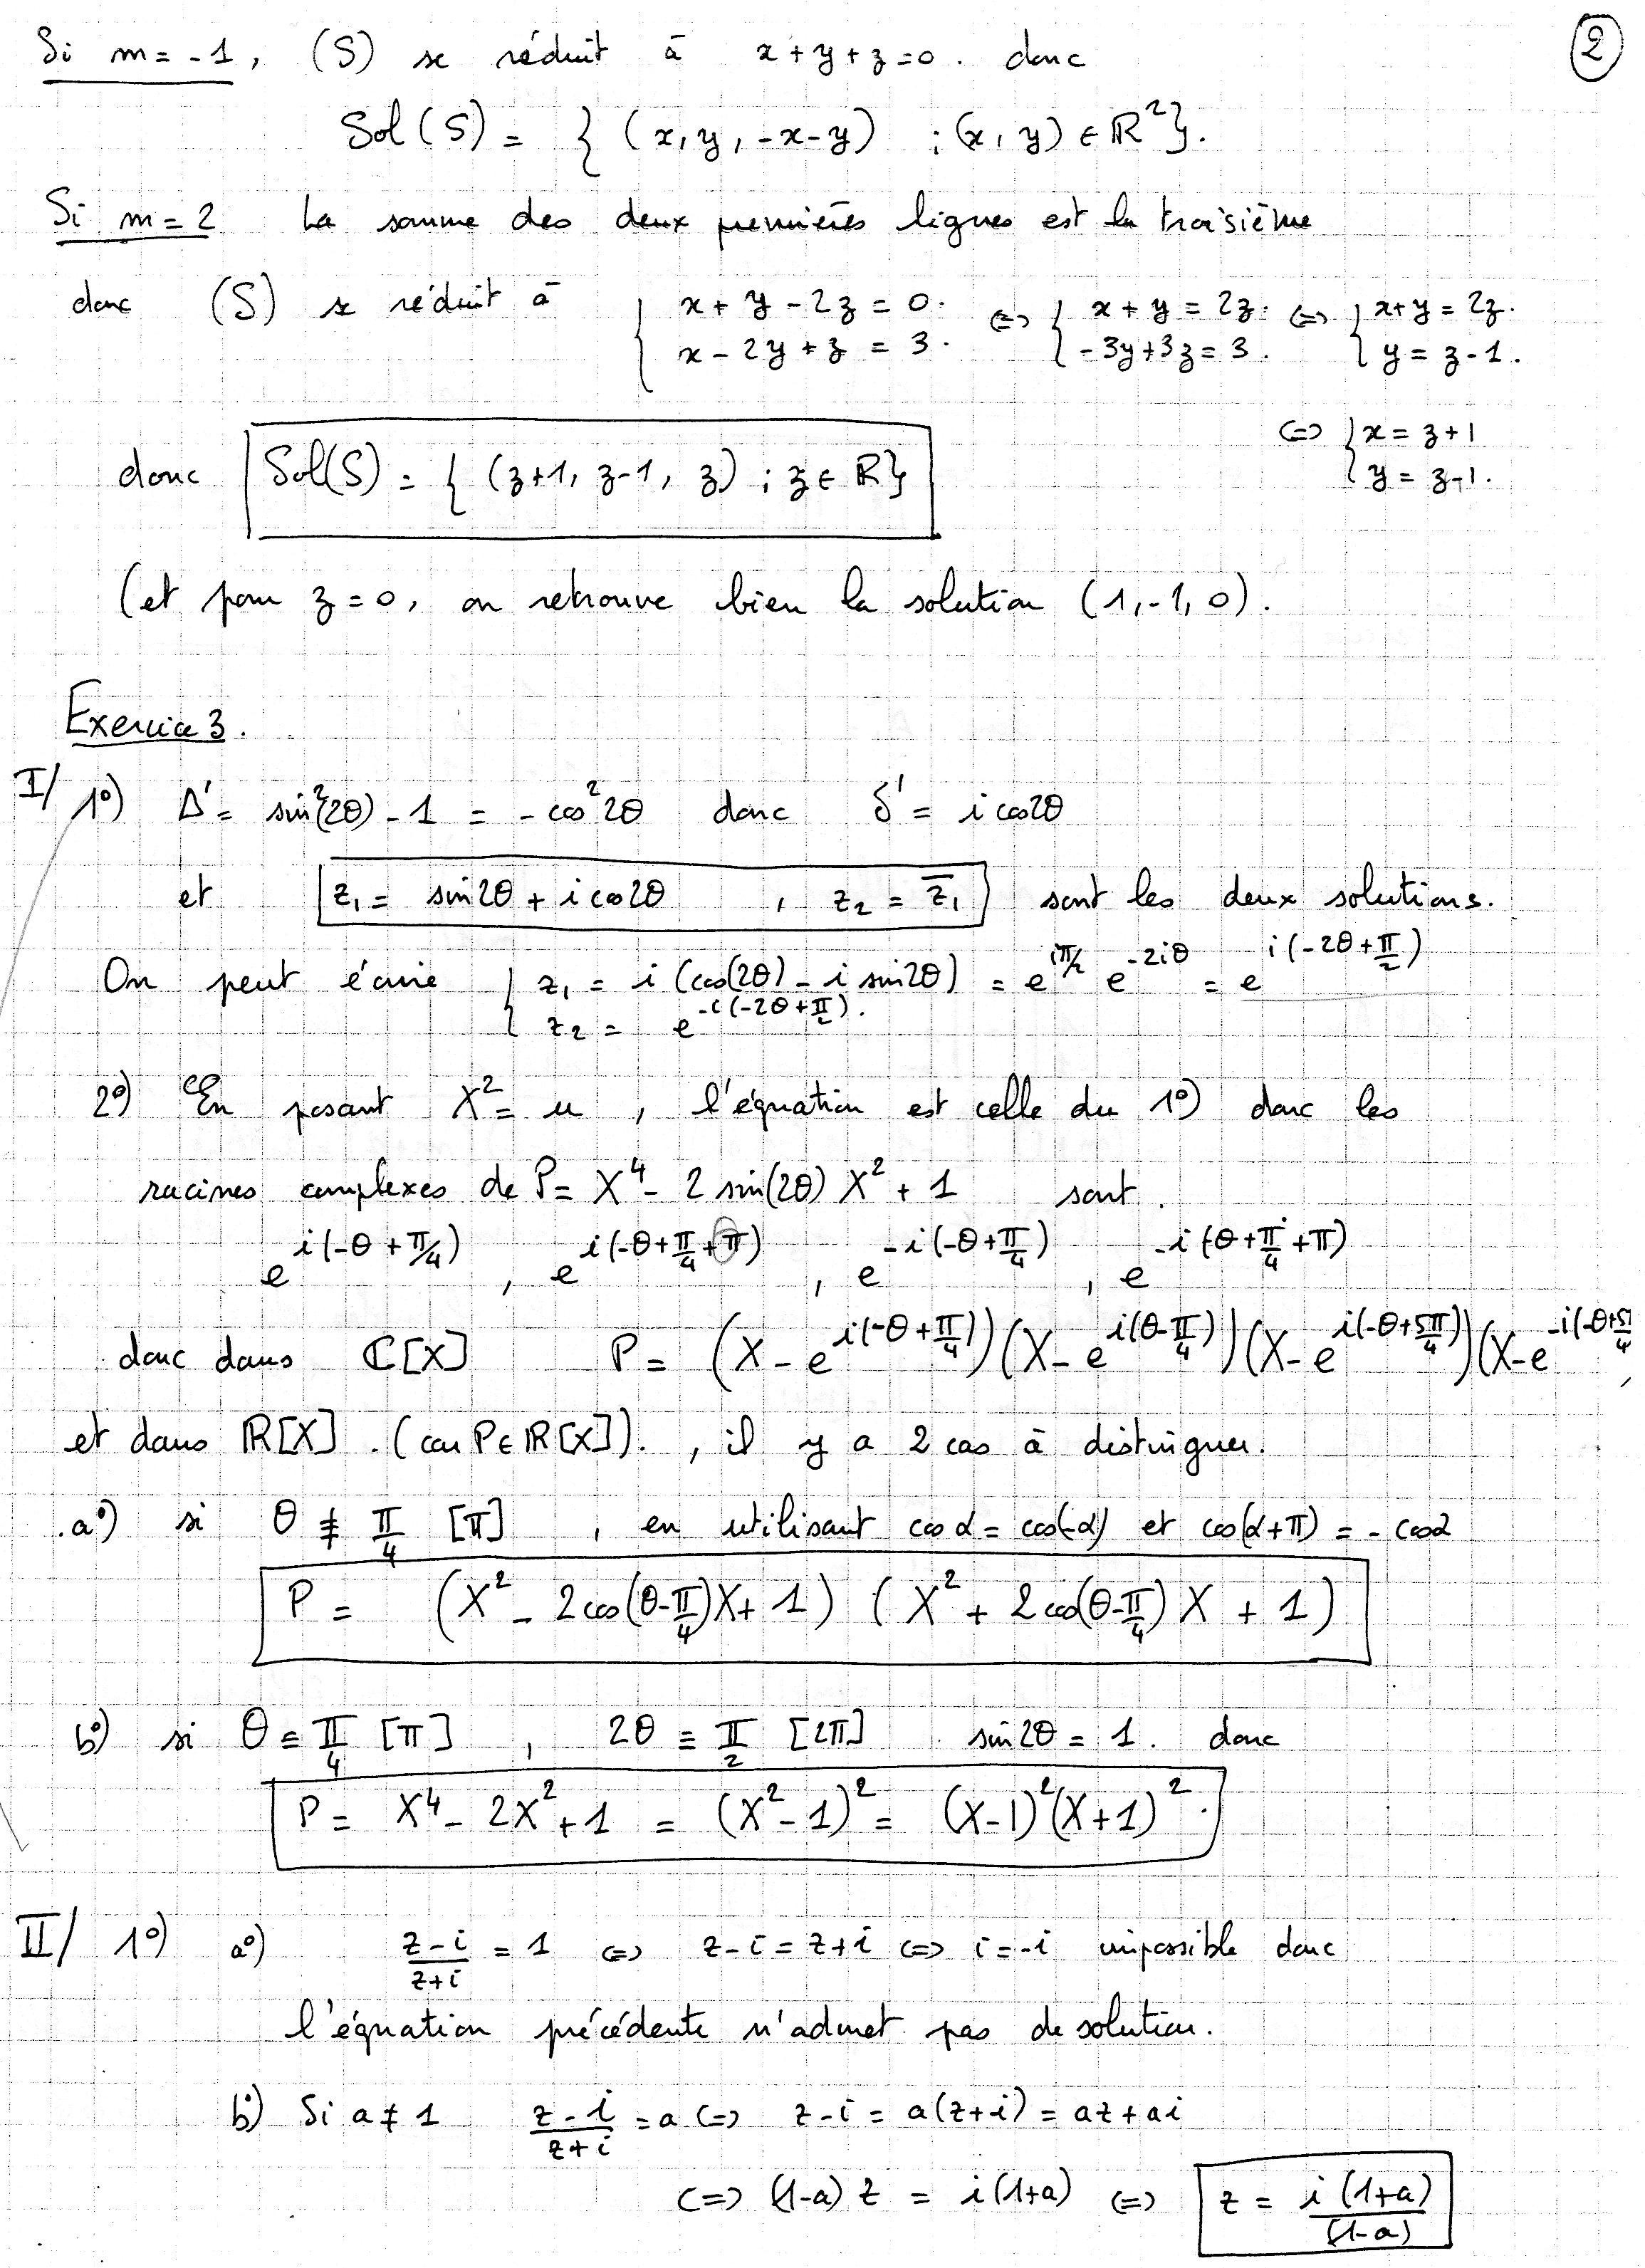 ②
Si m = -1, (S) se réduit à x + y + z = 0. donc
Sol(S) = { (x, y, -x-y) ; (x, y) ∈ ℝ² }.
Si m = 2 La somme des deux premières lignes est la troisième
donc (S) se réduit à { x + y - 2z = 0. x - 2y + z = 3. ⇔ { x + y = 2z. -3y + 3z = 3. ⇔ { x + y = 2z. y = z - 1.
⇔ { x = z + 1 y = z - 1.
donc Sol(S) = { (z+1, z-1, z) ; z ∈ ℝ }
(et pour z = 0, on retrouve bien la solution (1, -1, 0).
Exercice 3.
I/ 1°) Δ' = sin²(2θ) - 1 = - cos² 2θ donc δ' = i cos2θ
et z₁ = sin2θ + i cos2θ , z₂ = z̄₁ sont les deux solutions.
On peut écrire { z₁ = i (cos(2θ) - i sin2θ) = e^{iπ/2} e^{-2iθ} = e^{i(-2θ + π/2)}
z₂ = e^{-i(-2θ + π/2)}.
2°) En posant X² = u, l'équation est celle du 1°) donc les
racines complexes de P = X⁴ - 2 sin(2θ) X² + 1 sont.
e^{i(-θ + π/4)} , e^{i(-θ + π/4 + π)} , e^{-i(-θ + π/4)} , e^{-i(-θ + π/4 + π)}
donc dans ℂ[X] P = (X - e^{i(-θ + π/4)})(X - e^{i(θ - π/4)})(X - e^{i(-θ + 5π/4)})(X - e^{-i(-θ + 5π/4}
et dans ℝ[X]. (car P ∈ ℝ[X])., il y a 2 cas à distinguer.
a°) si θ ≢ π/4 [π] , en utilisant cos α = cos(-α) et cos(α + π) = - cos α
P = (X² - 2 cos(θ - π/4) X + 1) (X² + 2 cos(θ - π/4) X + 1)
b°) si θ ≡ π/4 [π] , 2θ ≡ π/2 [2π] sin 2θ = 1. donc
P = X⁴ - 2X² + 1 = (X² - 1)² = (X-1)² (X+1)².
II/ 1°) a°) (z - i)/(z + i) = 1 ⇔ z - i = z + i ⇔ i = -i impossible donc
l'équation précédente n'admet pas de solution.
b°) Si a ≠ 1 (z - i)/(z + i) = a ⇔ z - i = a(z + i) = az + ai
⇔ (1-a) z = i(1+a) ⇔ z = i(1+a)/(1-a)